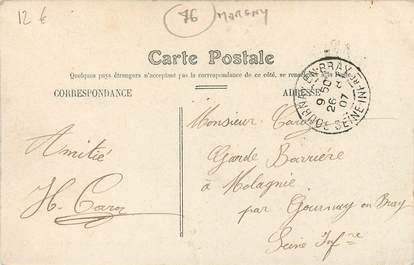 12 €
76
MORGNY
Carte Postale
Quelques pays étrangers n'acceptant pas la correspondance de ce côté, se renseigner à la Poste
CORRESPONDANCE
ADRESSE
GOURNAY-EN-BRAY
9 50
26
07
SEINE INFRE
Amitié
H. Caron
Monsieur Caron
Garde Barrière
à Molagnie
par Gournay en Bray
Seine Infre